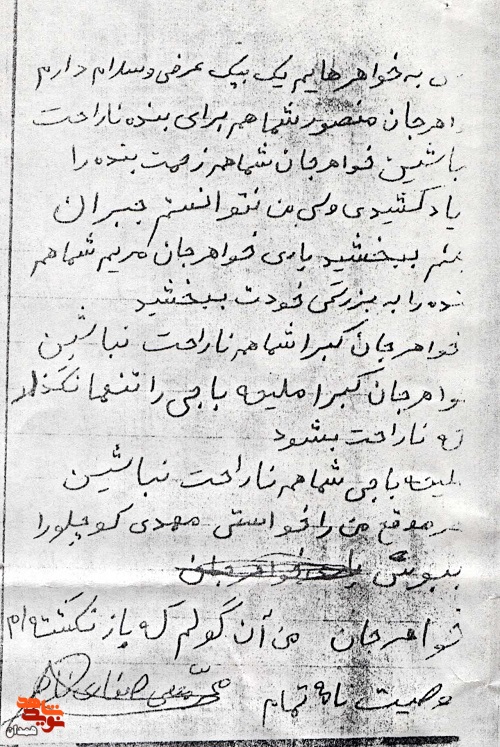 به خواهرهایم یک یک عرض و سلام دارم
اهرجان منصور شما هم برای بنده ناراحت
باشین خواهرجان شما هم زحمت بنده را
یاد کشیدی ولی من نتوانستم جبران
نم ببخشید باری خواهرجان مریم شما هم
نده را به بزرگی خودت ببخشید
خواهرجان کبرا شما هم ناراحت نباشین
واهرجان کبرا ملیحه باجی را تنها نگذار
که ناراحت بشود
ملیحه باجی شما هم ناراحت نباشین
هر موقع من را خواستی مهدی کوچلو را
ببوس
خواهرجان من آن گولم که باز نگشته‌ام
وصیت نامه تمام
نوید شاهد